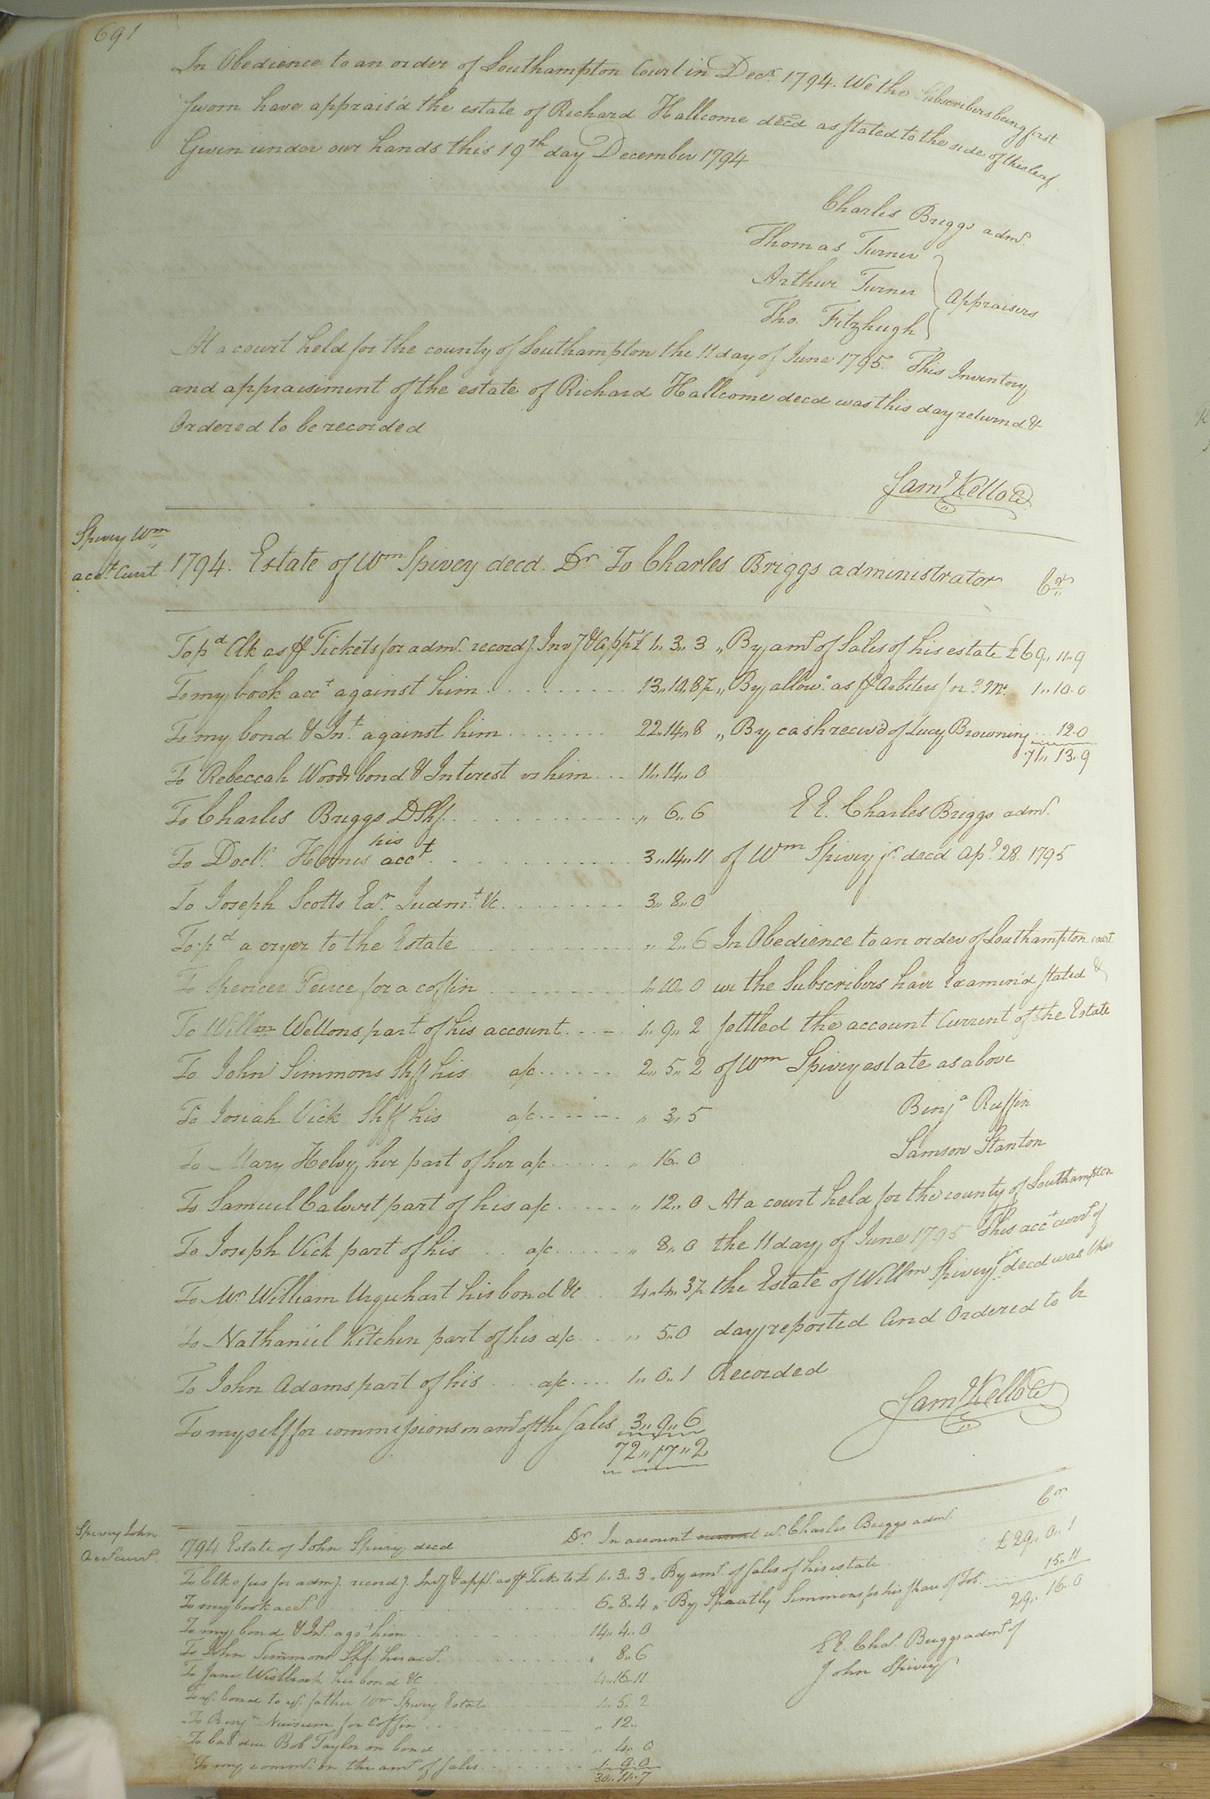 691
In Obedience to an order of Southampton Court in Decr. 1794. We the Subscribers being first
sworn have apprais'd the estate of Richard Hallcome decd as stated to the side of this leaf
Given under our hands this 19th day December 1794
Charles Briggs admr.
Thomas Turner
Arthur Turner
Appraisers
Tho. Fitzhugh
At a court held for the county of Southampton the 11 day of June 1795. This Inventory
and appraisiment of the estate of Richard Hallcome decd was this day returnd &
Ordered to be recorded
Saml Kello
Spivey Wm
acct Curt
1794. Estate of Wm Spivey decd. Dr To Charles Briggs administrator Cr
To pd Clk as Tickets for admr. record
£ 1,, 3,, 3 ,, By amt of Sales of his estate £69,, 11,,9
To my book acct against him 13,,10,,8½ ,, By allow. as
1,,10,,0
To my bond & Int against him 22,,14,,8 ,, By cash reciv'd of Lucy Browning 12.0
71,, 13,,9
To Rebeccah Woods bond & Interest vs him 11,,14,,0
To Charles Briggs DShf ,, 6,,6 E E. Charles Briggs admr.
To Doctr. his acct 3,,14,,11 of Wm Spivey jr. decd Apl 28. 1795
To Joseph Scotts Exr. Judmt. &c 3,,8,,0
To pd a cryer to the Estate ,, 2,,6 In Obedience to an order of Southampton court
To Spencer Peirce for a coffin 1,,10,,0 we the Subscribers have Examind stated &
To Willm Wellons part of his account 1,,9,,2 settled the account Current of the Estate
To John Simmons Shff his a/c 2,,5,,2 of Wm Spivey estate as above
To Josiah Vick Shff his a/c ,, 3,,5 Benja Ruffin
To Mary Helvy her part of her a/c ,, 16,,0 Samson Stanton
To Samuel Calvert part of his a/c ,, 12,,0 At a court held for the county of Southampton
To Joseph Vick part of his a/c ,, 8,,0 the 11 day of June 1795 This acct curnt of
To Mr William Urquhart his bond &c 4,,4,,3½ the Estate of Willm Spivey jr decd was this
To Nathaniel Kitchen part of his a/c ,, 5,,0 day reported and Ordered to be
To John Adams part of his a/c 1,,0,,1 Recorded
To myself for commissions on amt of the Sales 3,,9,,6
Saml Kello
72,,17,,2
Spivey John
Acct Curnt.
1794 Estate of John Spivey decd Dr In account w. Charles Briggs admr. Cr
1,,3,,3 ,, By amt. of Sales of his estate £29,,0,,1
To my book acct. 6,,8,,4 ,, By Simmons for his share of 15,,11
29,,16,,0
To my bond & Int. agst him 14,,4,,0
To John Simmons Shf. his acct. ,, 8,,6 E E. Chas. Briggs admr of
To Jane Westbrook her bond &c 4,,16,,11 John Spivey
bond to father Wm Spivey Estate 1,,5,,2
To Benja for coffin ,, 12,,
To due Bob Taylor on bond ,, 4,,0
To my comms. on the amt of Sales 1,,9,,0
30,,11,,7